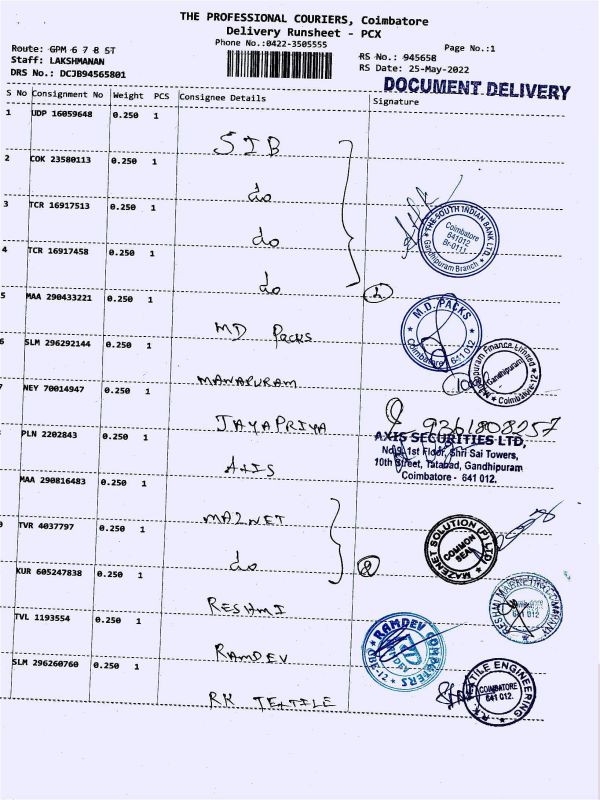 THE PROFESSIONAL COURIERS, Coimbatore
Delivery Runsheet - PCX
Phone No.:0422-3505555
Page No.:1
Route: GPM 6 7 8 ST
Staff: LAKSHMANAN
DRS No.: DCJB94565801
RS No.: 945658
RS Date: 25-May-2022
DOCUMENT DELIVERY
S No Consignment No Weight PCS Consignee Details Signature
1 UDP 16059648 0.250 1
SIB
2 COK 23580113 0.250 1
do
3 TCR 16917513 0.250 1
do
THE SOUTH INDIAN BANK LTD.
Coimbatore
641012.
Br-0111.
Gandhipuram Branch
4 TCR 16917458 0.250 1
do
5 MAA 290433221 0.250 1
MD Packs
M.D. PACKS
Coimbatore 641 012
6 SLM 296292144 0.250 1
MANAPURAM
Finance Limited
Gandhipuram
Coimbatore-12
7 NEY 70014947 0.250 1
JAYAPRIYA
9361808257
AXIS SECURITIES LTD,
No.9, 1st Floor, Shri Sai Towers,
10th Street, Tatabad, Gandhipuram
Coimbatore - 641 012.
PLN 2202843 0.250 1
AXIS
MAA 290816483 0.250 1
MAZNET
MAZENET SOLUTION (P) LTD
COMMON
SEAL
TVR 4037797 0.250 1
do
KUR 605247838 0.250 1
RESHMI
RESHMI MARKETING COMPANY
TVL 1193554 0.250 1
RAMDEV
RAMDEV COMPUTERS
CBE-12
SLM 296260760 0.250 1
RK TEXTILE
R.K. TEXTILE ENGINEERING
COIMBATORE
641 012.